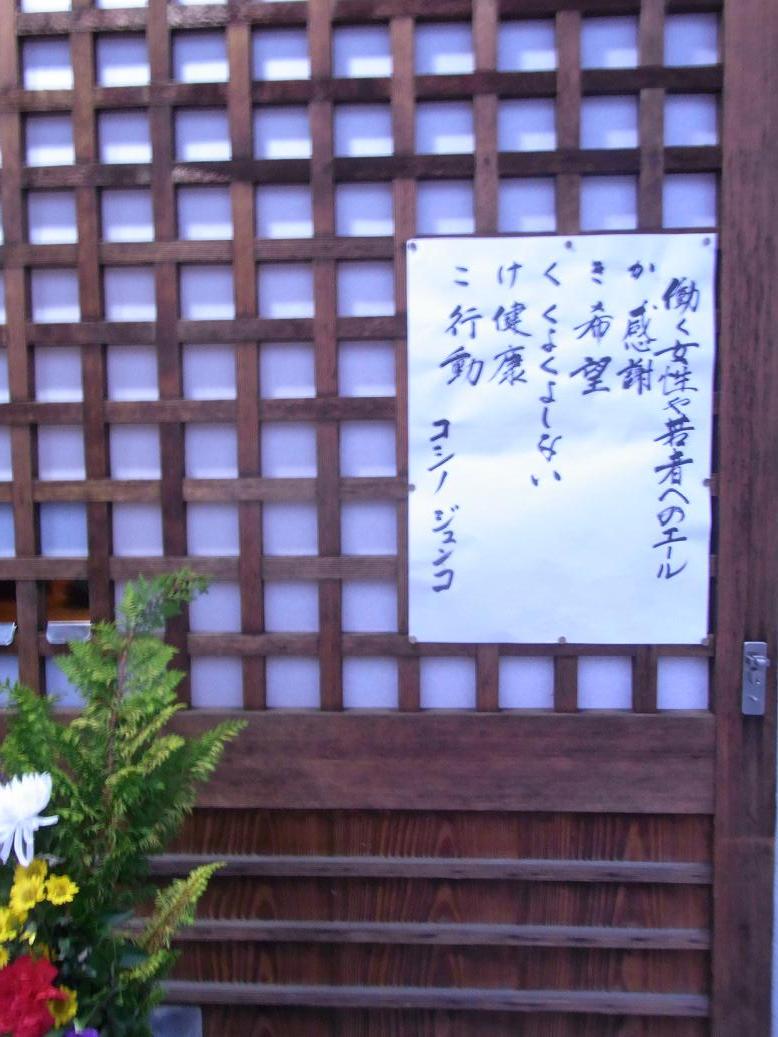 働く女性や若者へのエール
か 感謝
き 希望
く くよくよしない
け 健康
こ 行動
コシノ ジュンコ